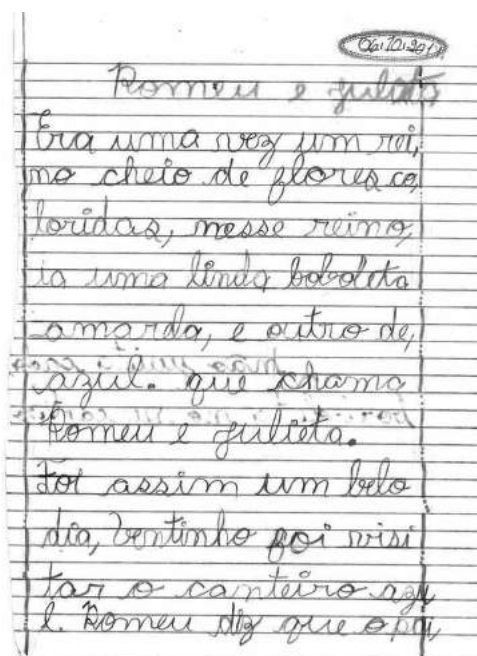 06.10.201
Romeu e Julieta
Era uma vez um rei,
no cheio de flores co,
loridas, nesse reino,
ia uma linda boboleta
amarda, e outro de,
azul. que chama
Romeu e Julieta.
Foi assim um belo
dia, Ventinho foi visi
tar o canteiro azu
l. Romeu diz que o pai,